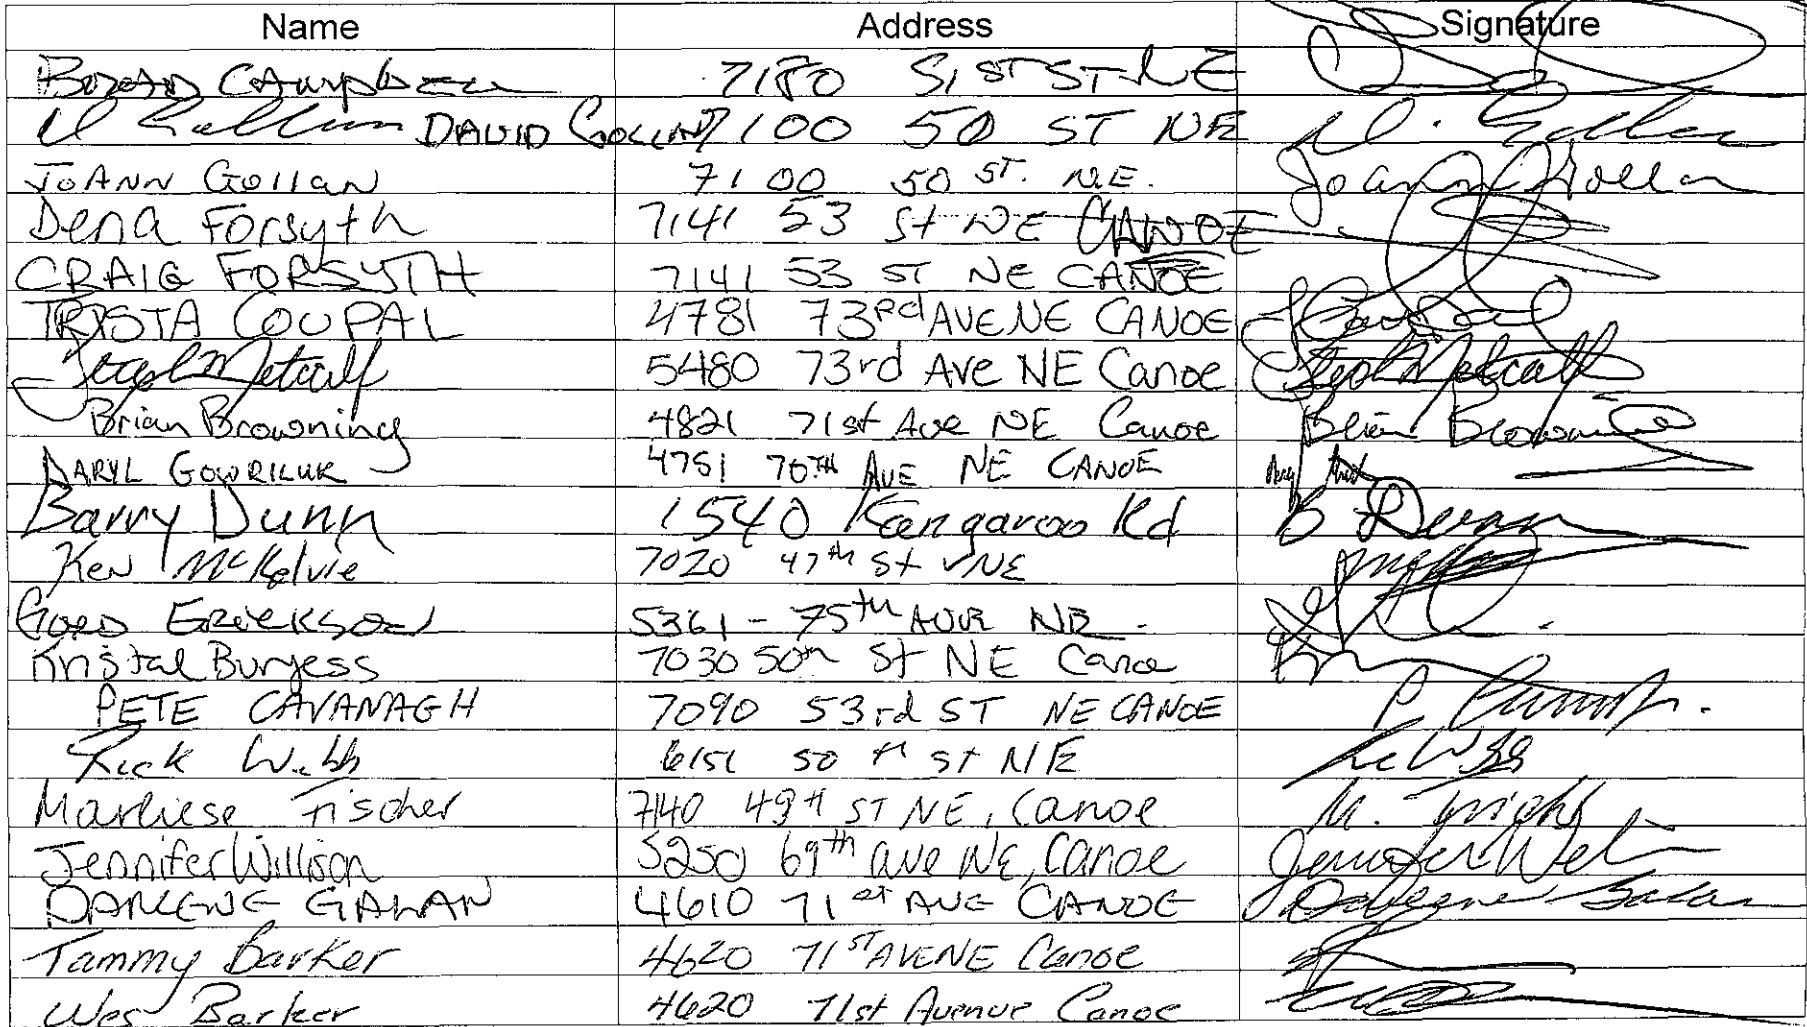 Name Address Signature
BRAD CAMPBELL 7180 51ST ST NE
D Gollan DAVID GOLLAN 7100 50 ST NE D. Gollan
JOANN GOllAN 7100 50 ST. N.E. Joann Gollan
Dena Forsyth 7141 53 St NE CANOE
CRAIG FORSYTH 7141 53 ST NE CANOE
TRISTA COUPAL 4781 73rd AVE NE CANOE T Coupal
Steph Metcalf 5480 73rd Ave NE Canoe Steph Metcalf
Brian Browning 4821 71st Ave NE Canoe Brian Browning
DARYL GOWRILUK 4751 70TH AVE NE CANOE
Barry Dunn 1540 Kangaroo Rd B Dunn
Ken McKelvie 7020 47th St NE
GORD ERICKSON 5361 - 75th AVE NE.
Kristal Burgess 7030 50th St NE Canoe
PETE CAVANAGH 7090 53rd ST NE CANOE
Rick Webb 6151 50 th St NE
Marliese Fischer 7140 49th ST NE, Canoe
Jennifer Willison 5250 69th ave NE, Canoe
DARLENE GALAN 4610 71st AVE CANOE Darlene Galan
Tammy Barker 4620 71ST AVE NE Canoe
Wes Barker 4620 71st Avenue Canoe